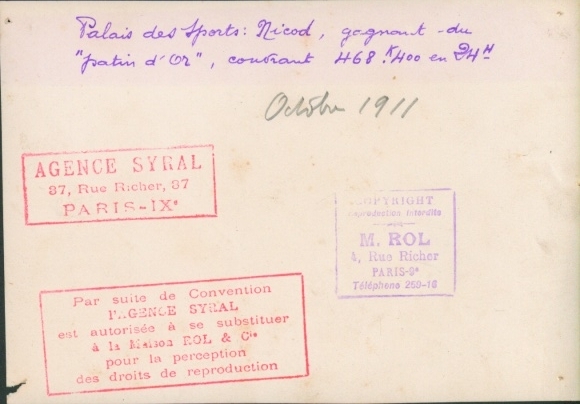 Palais des Sports: Nicod, gagnant du
"patin d'Or", couvrant 468.K400 en 24H
Octobre 1911
AGENCE SYRAL
37, Rue Richer, 37
PARIS-IXe
COPYRIGHT
Reproduction interdite
M. ROL
4, Rue Richer
PARIS-9e
Téléphone 259-16
Par suite de Convention
l'AGENCE SYRAL
est autorisée à se substituer
à la Maison ROL & Cie
pour la perception
des droits de reproduction